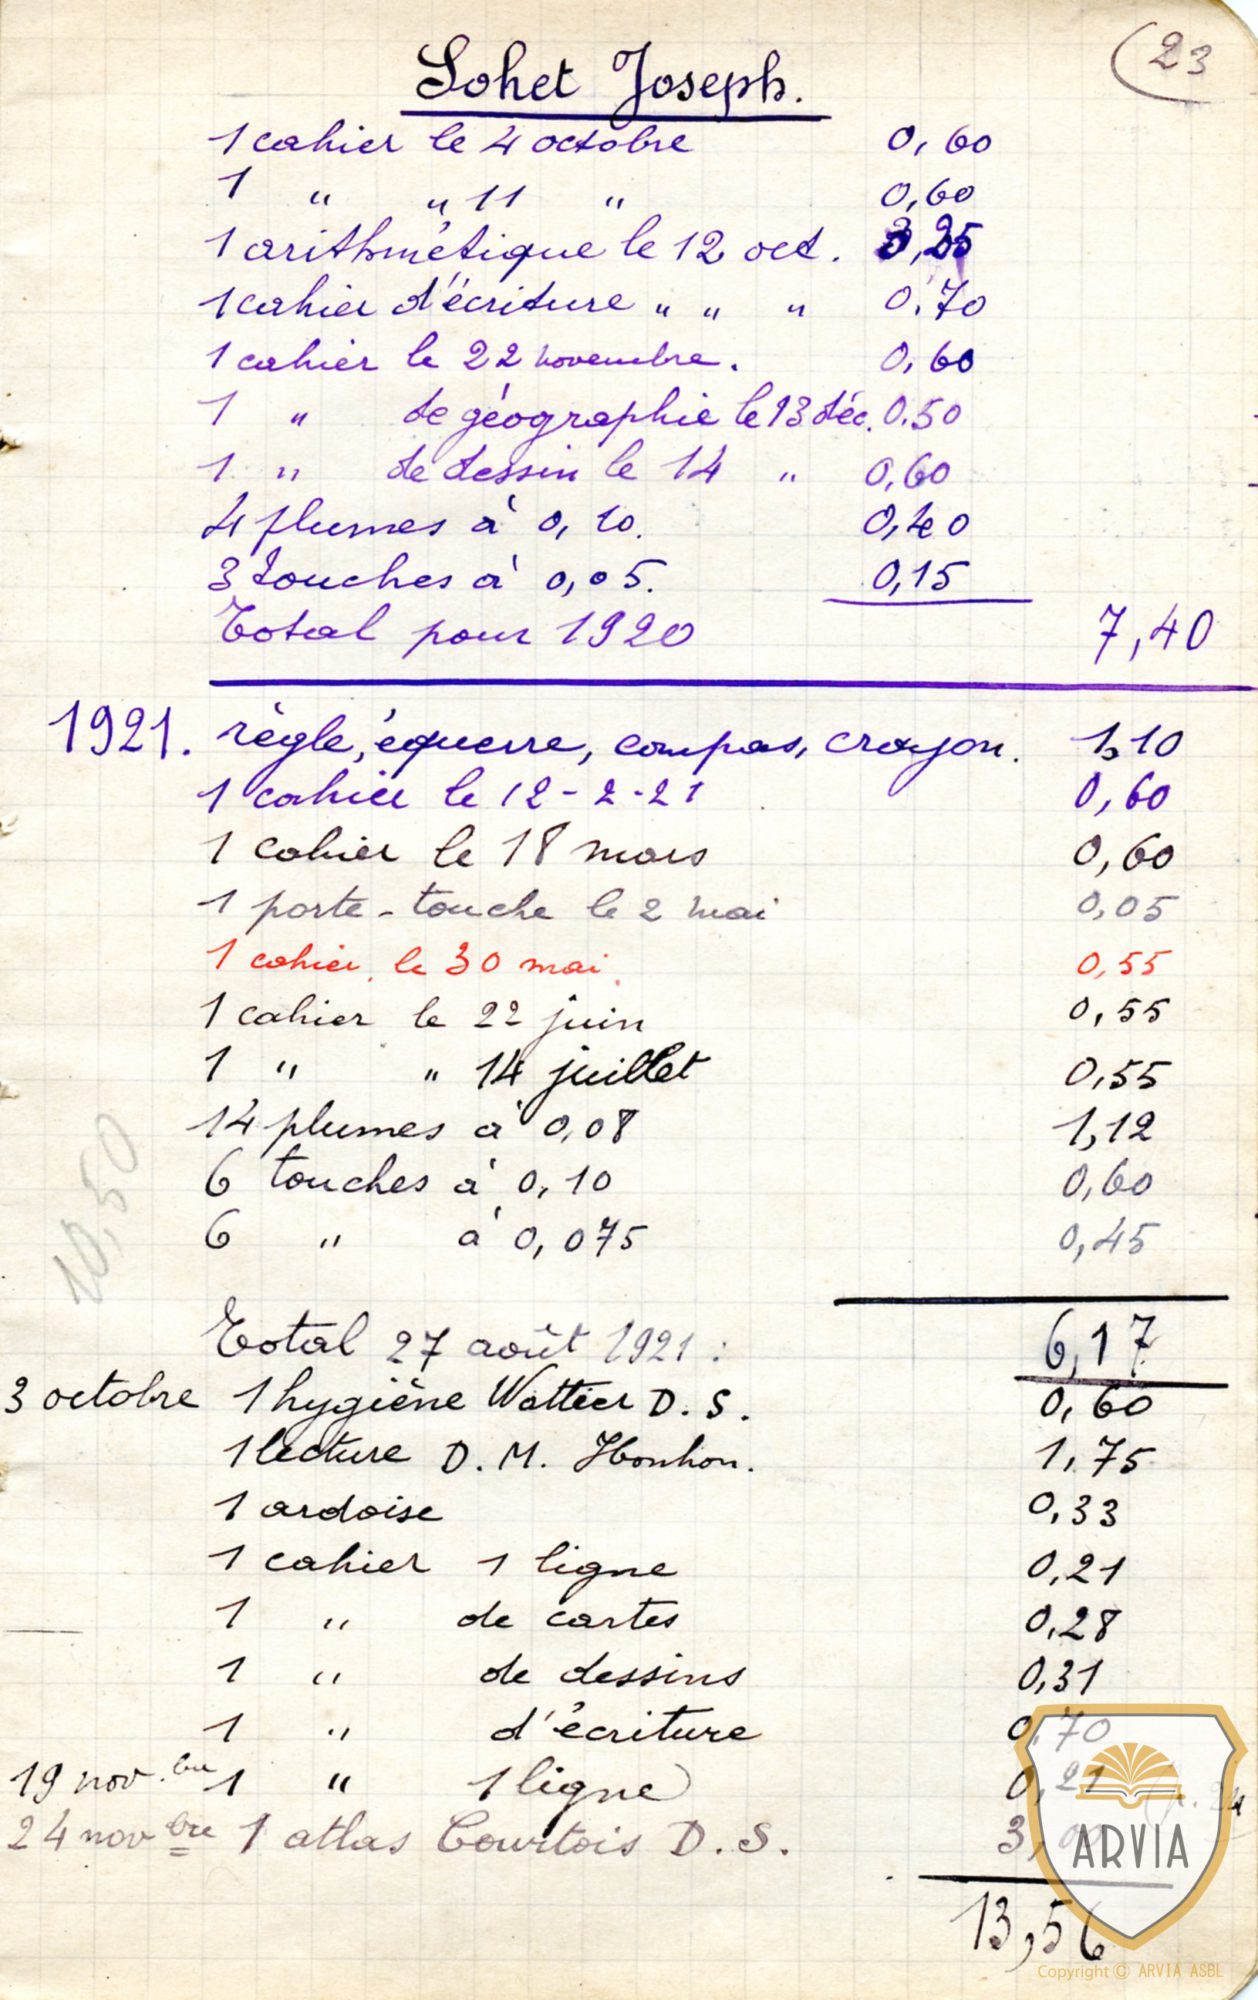 (23
Sohet Joseph.
1 cahier le 4 octobre 0,60
1 " " 11 " 0,60
1 arithmétique le 12 oct. 3,25
1 cahier d'écriture " " " 0,70
1 cahier le 22 novembre. 0,60
1 " de géographie le 13 déc. 0.50
1 " de dessin le 14 " 0,60
4 plumes à 0,10. 0,40
3 touches à 0,05. 0,15
Total pour 1920 7,40
1921. règle, équerre, compas, crayon. 1,10
1 cahier le 12-2-21 0,60
1 cahier le 18 mars 0,60
1 porte-touche le 2 mai 0,05
1 cahier le 30 mai 0,55
1 cahier le 22 juin 0,55
1 " " 14 juillet 0,55
14 plumes à 0,08 1,12
6 touches à 0,10 0,60
6 " à 0,075 0,45
10,50
Total 27 août 1921 : 6,17
3 octobre 1 hygiène Wattier D. S. 0,60
1 lecture D. M. Honhon. 1,75
1 ardoise 0,33
1 cahier 1 ligne 0,21
1 " de cartes 0,28
1 " de dessins 0,31
1 " d'écriture 0,70
19 nov.bre 1 " 1 ligne 0,21
24 novbre 1 atlas Courtois D. S. 3,00
13,56
ARVIA
Copyright © ARVIA ASBL